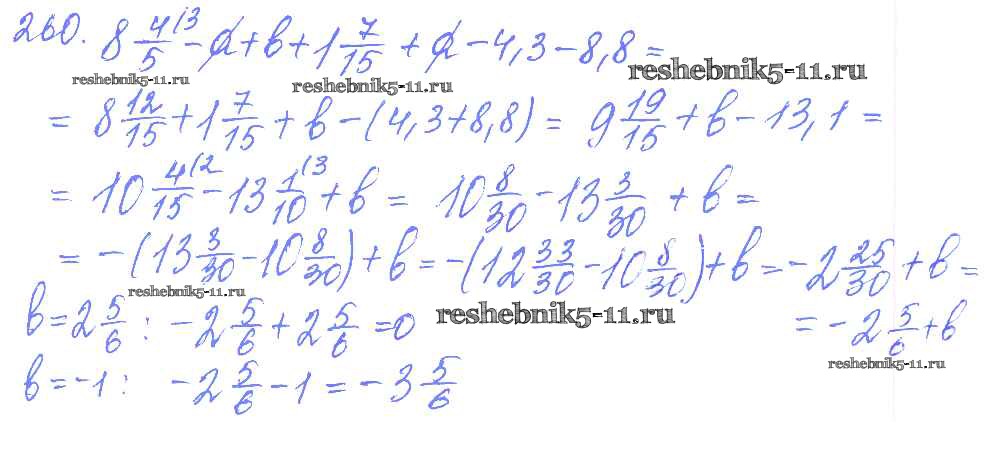 260. 8 4/5 (3 - a + b + 1 7/15 + a - 4,3 - 8,8 =
reshebnik5-11.ru reshebnik5-11.ru reshebnik5-11.ru
= 8 12/15 + 1 7/15 + b - (4,3 + 8,8) = 9 19/15 + b - 13,1 =
= 10 4/15 (2 - 13 1/10 (3 + b = 10 8/30 - 13 3/30 + b =
= -(13 3/30 - 10 8/30) + b = -(12 33/30 - 10 8/30) + b = -2 25/30 + b =
reshebnik5-11.ru
b = 2 5/6 : -2 5/6 + 2 5/6 = 0 reshebnik5-11.ru = -2 5/6 + b
reshebnik5-11.ru
b = -1 : -2 5/6 - 1 = -3 5/6